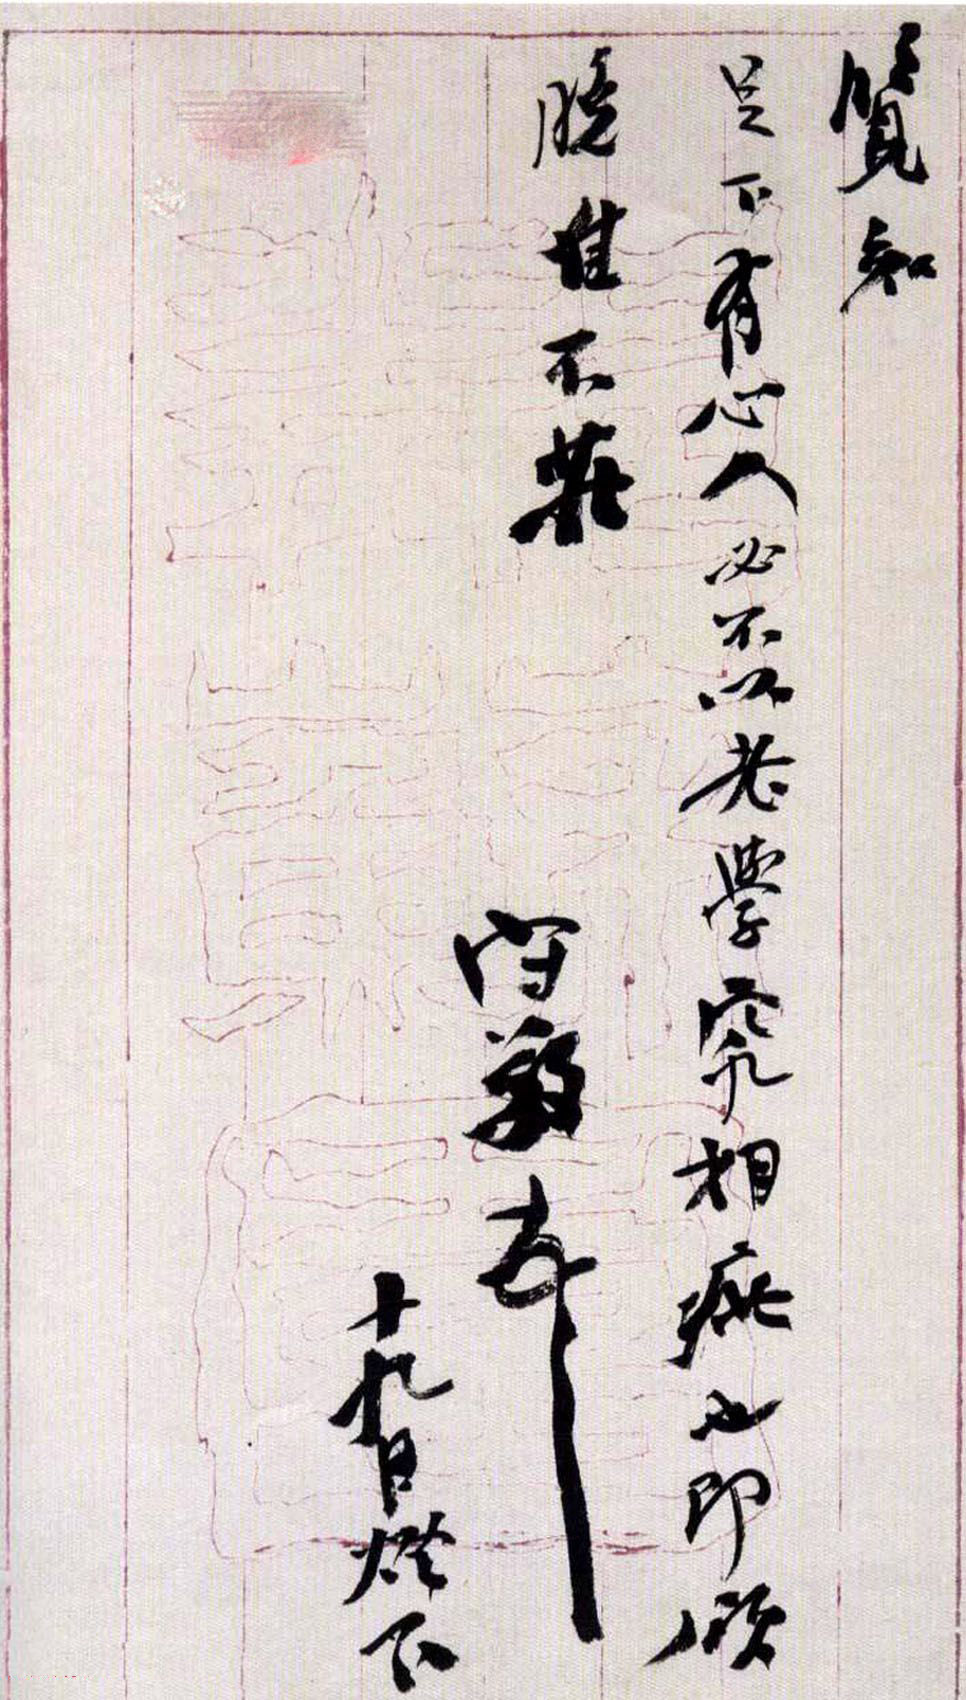 覽知
足下有心人必不以老學究相疵也即頌
臨佳不莊
守敬頓
十九日燈下